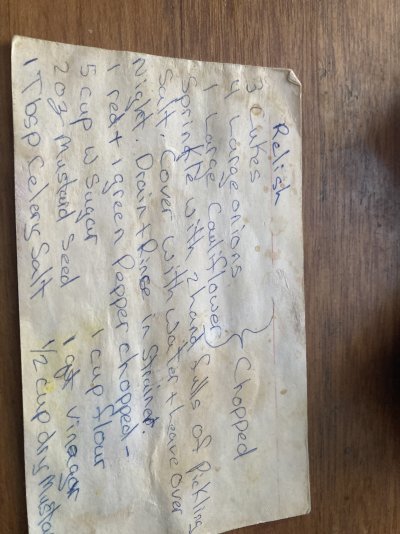 Relish
3 cukes
4 Large onions
1 Large Cauliflower } Chopped
Sprinkle with 2 handfulls of Pickling
Salt. Cover with water + Leave over
Night. Drain + Rinse in Strainer.
1 red + 1 green Pepper chopped -
5 cup w sugar 1 cup flour
2oz Mustard Seed 1 qt vinegar
1 Tbsp Celery Salt 1/2 cup dry Musta